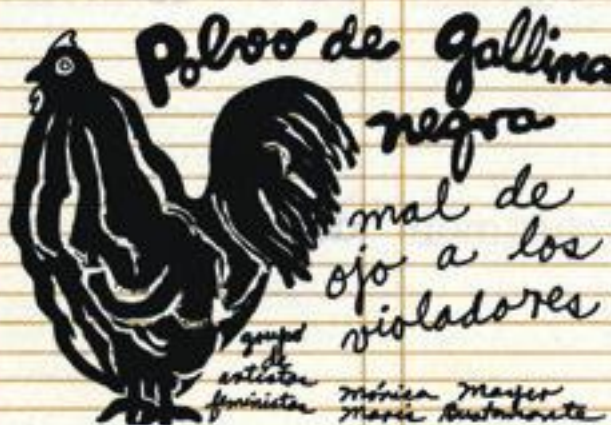 Polvo de gallina
negra
mal de
ojo a los
violadores
grupo
de
artistas
feministas
Mónica Mayer
Maris Bustamante